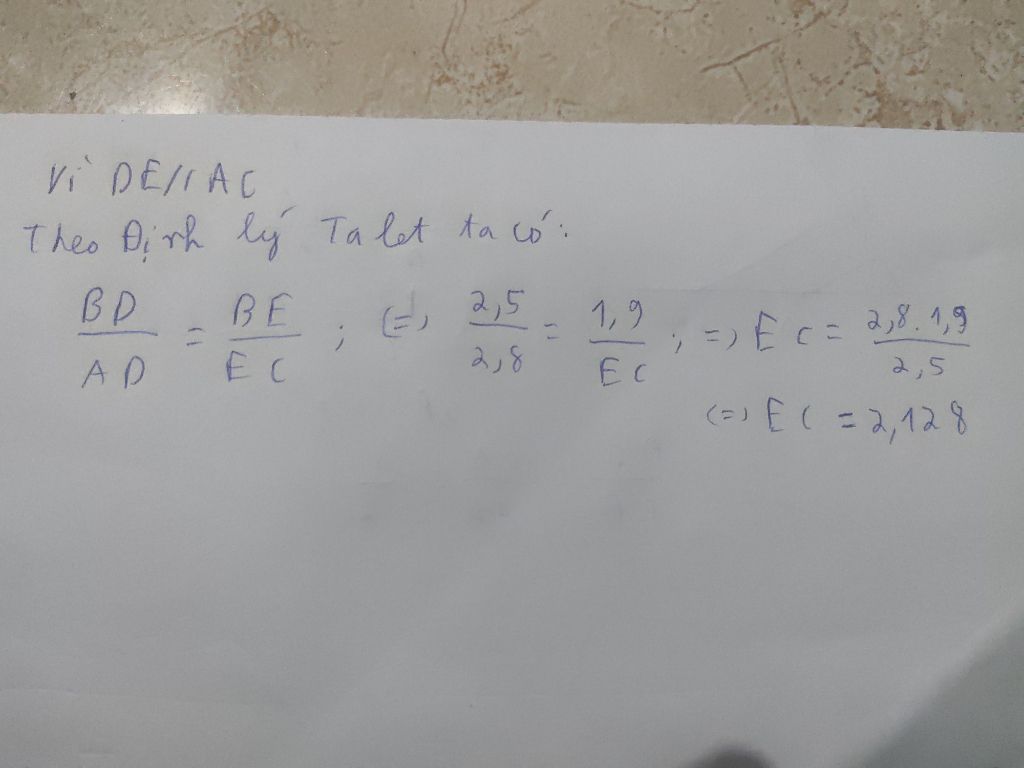 Vì DE//AC
Theo Định lý Talet ta có:
BD/AD = BE/EC ; <=> 2,5/2,8 = 1,9/EC ; => EC = 2,8.1,9/2,5
<=> EC = 2,128